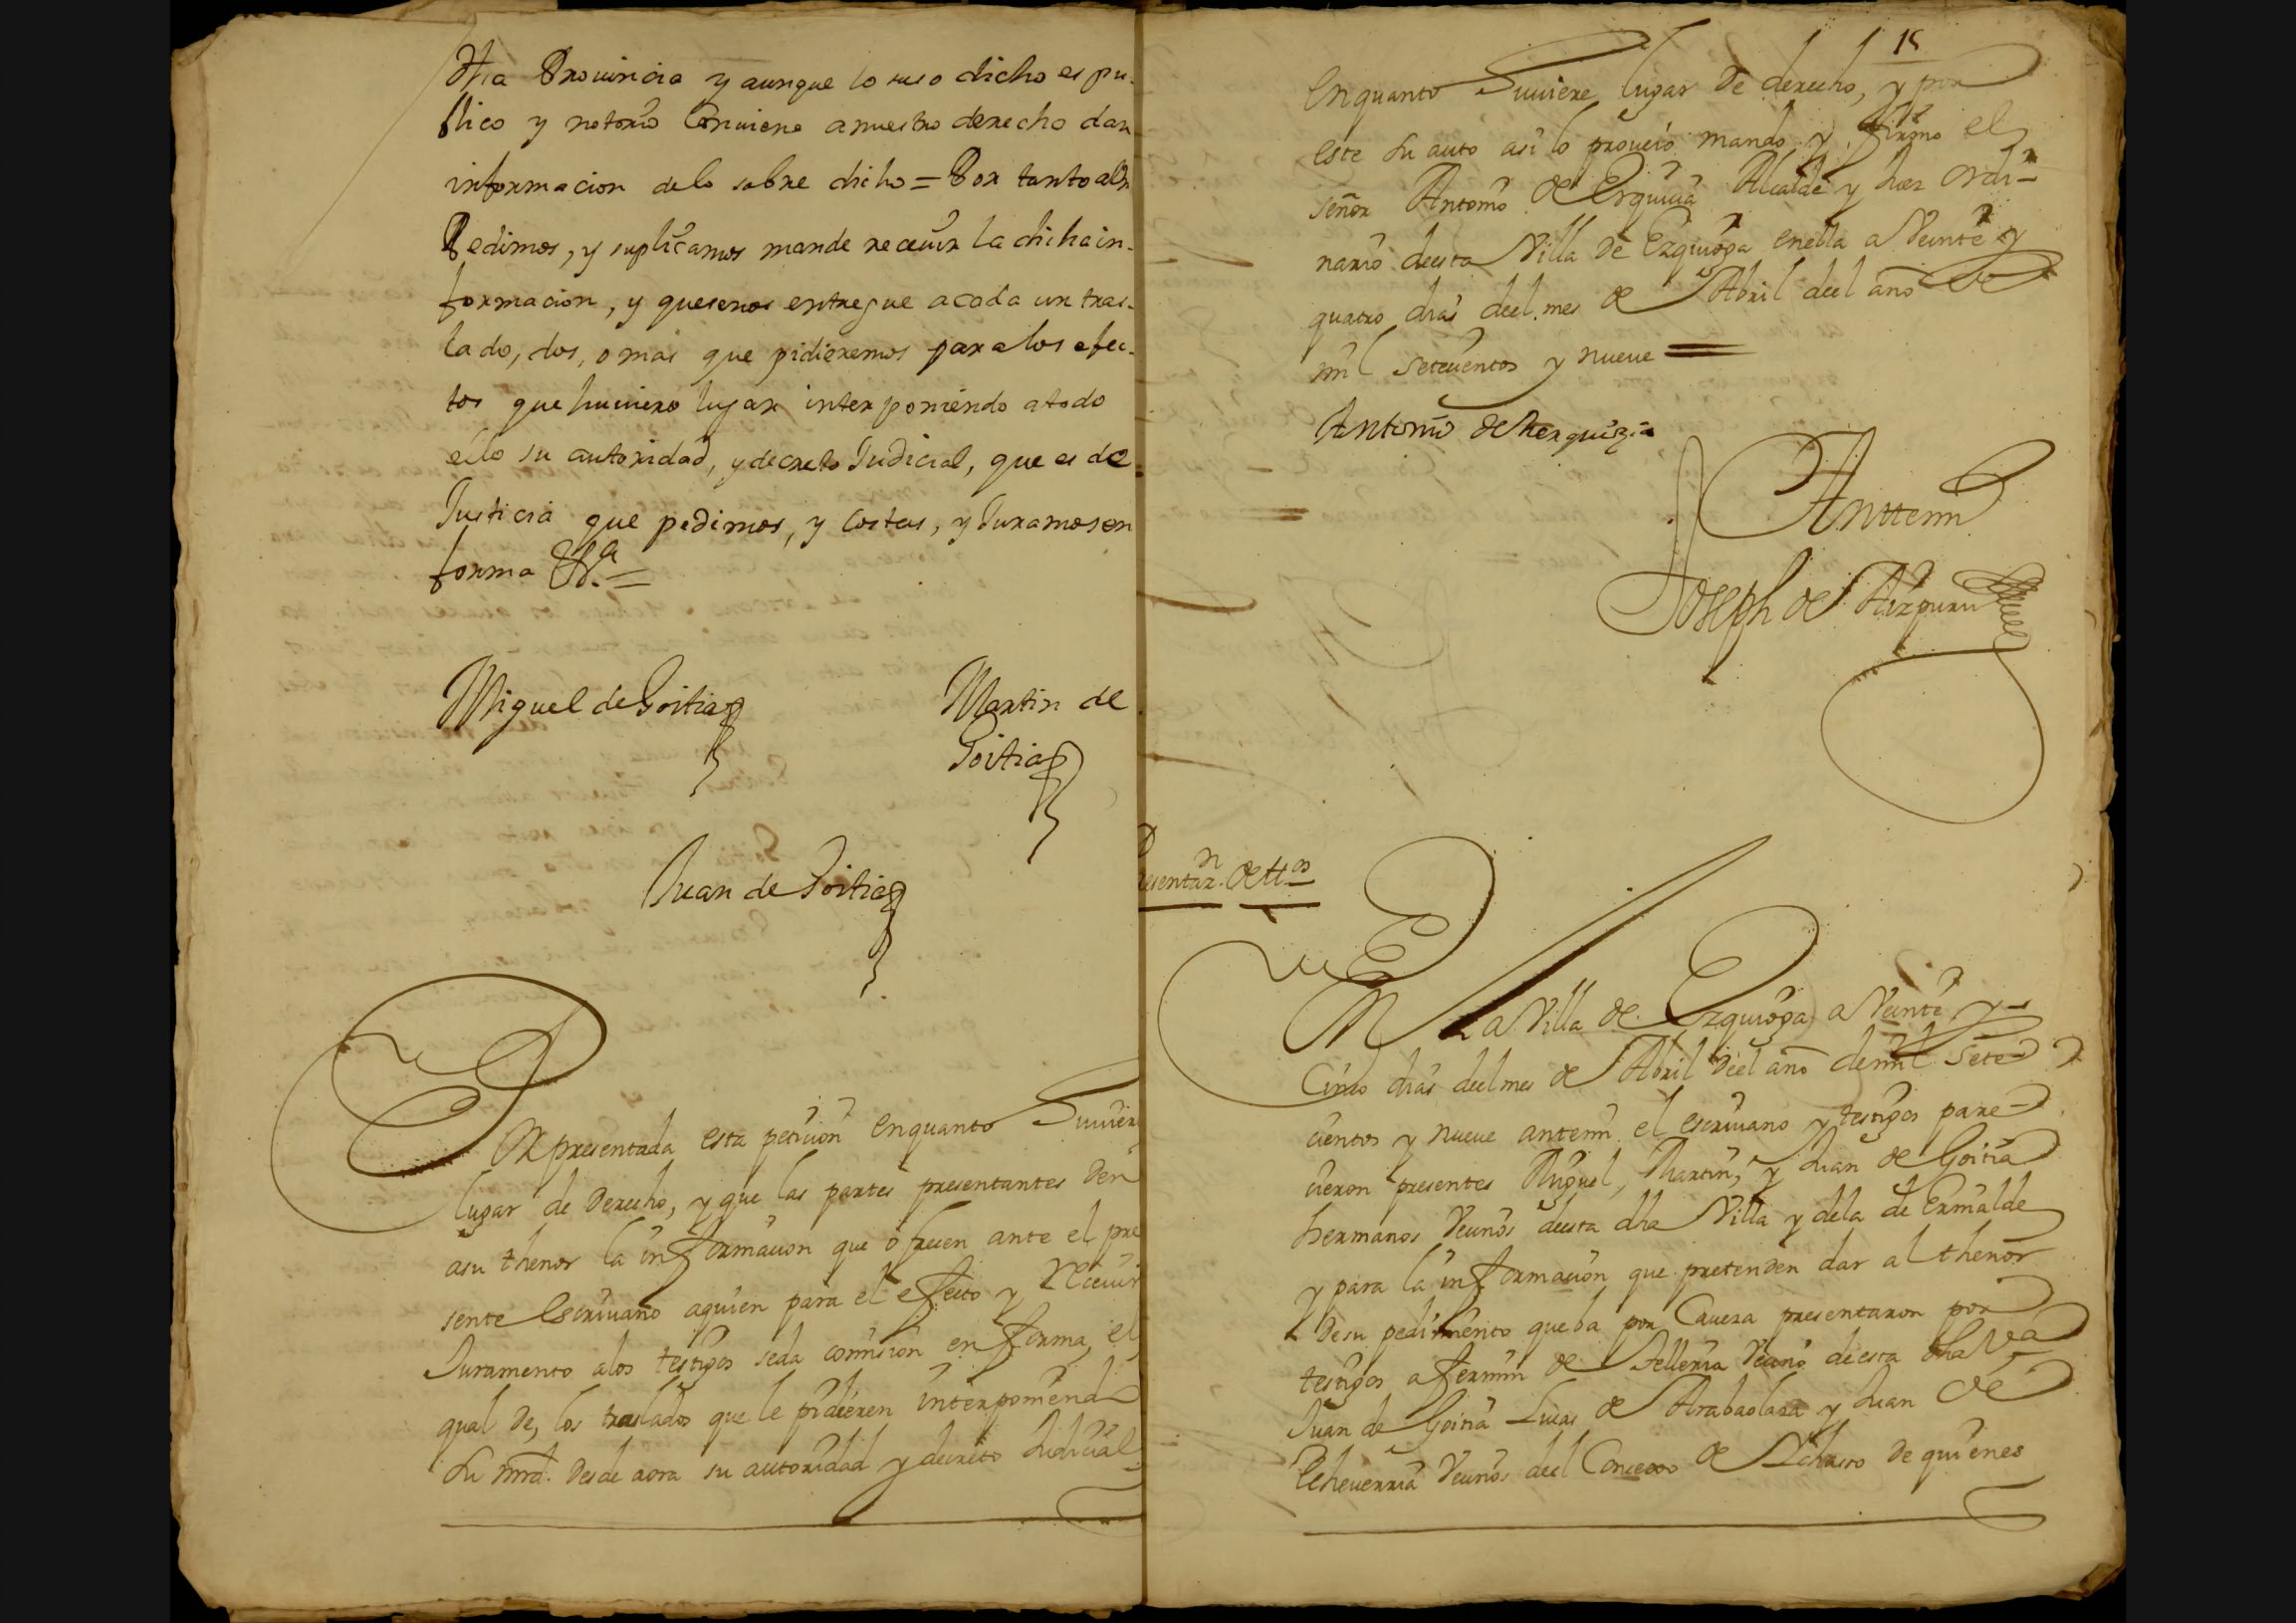 dha Prouincia y aunque lo suso dicho es pu-
blico y notorio Conuiene anuestro derecho dar
informacion delo sobre dicho = Por tanto a Vm
Pedimos, y suplicamos mande receuir la dicha in-
formacion, y quesenos entregue acada un tras-
lado, dos, o mas que pidieremos para los efec-
tos que huuiere lugar interponiendo atodo
ello su autoridad, y decreto Judicial, que es de
Justicia que pedimos, y Costas, y Juramos en
forma &ª =
Miguel de Goitia
Martin de
Goitia
Juan de Goitia
POR presentada esta peticion enquanto huuier
lugar de Derecho, y que las partes presentantes den
asu thenor la informacion que ofrecen ante el pre
sente Escriuano aquien para el efecto y Receuir
Juramento alos testigos seda comision en forma, el
qual de, los traslados que le pidieren interponiend
Su mrd. Desde aora su autoridad y decreto Judicial
15
enquanto huuiere lugar de derecho, y por
este su auto asi lo proueió mando y firmo el
señor Antonio de Erquicia Alcalde y Juez Ordi-
nario deesta Villa de Ezquioga enella a Veinte y
quatro dias deel mes de Abril deel año de
mil setecientos y nueue =
Antonio de herquizia
Anttemi
Joseph de Aizpuru
Presentaz.n de tt.os
EN La Villa de Ezquioga a Veinte y
Cinco dias deel mes de Abril deel año de mil sete
cientos y nueue antemi el escriuano y testigos pare
cieron presentes Miguel, Martin, y Juan de Goitia
hermanos Vecinos deesta dha Villa y dela de Ezmalde
y para la informacion que pretenden dar al thenor
Desu pedimento queba por Caueza presentaron por
testigos a fermin de Telleria Vecino deesta dha Vª
Juan de Goitia Lucas de Arabaolaza y Juan de
Echeuerria Vecinos deel Concexo de Ychaso de quienes